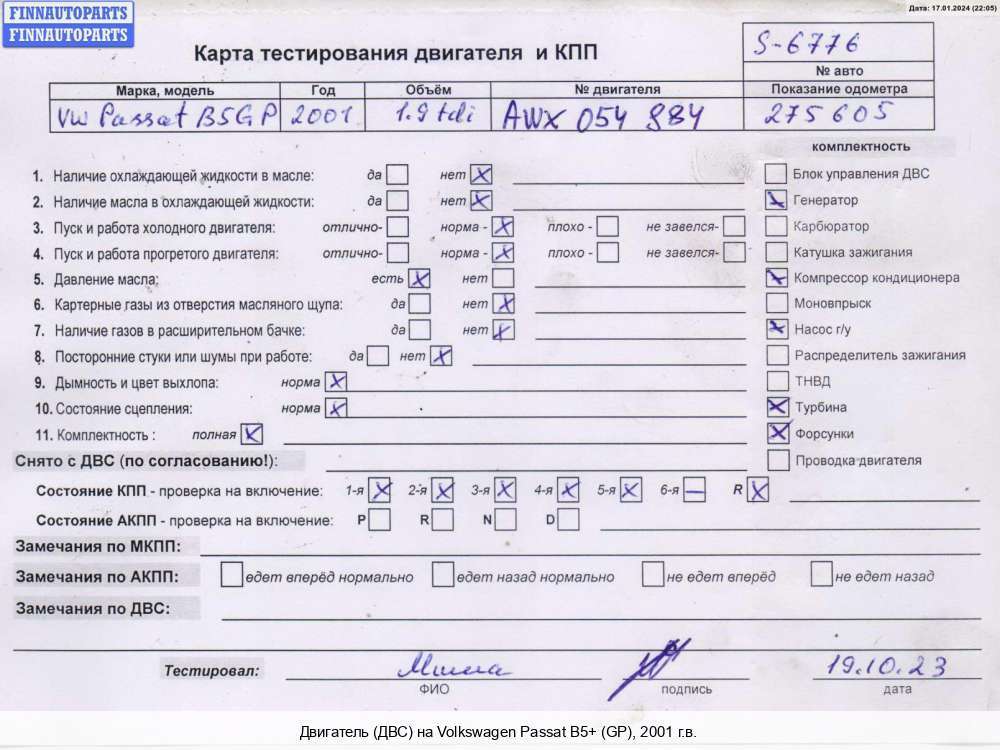 FINNAUTOPARTS
FINNAUTOPARTS
Дата: 17.01.2024 (22:05)
Карта тестирования двигателя и КПП
S-6776
№ авто
Марка, модель Год Объём № двигателя Показание одометра
VW Passat B5GP 2001 1.9 tdi AWX 054 884 275605
комплектность
1. Наличие охлаждающей жидкости в масле: да нет X Блок управления ДВС
2. Наличие масла в охлаждающей жидкости: да нет X Генератор
3. Пуск и работа холодного двигателя: отлично- норма - X плохо - не завелся- Карбюратор
4. Пуск и работа прогретого двигателя: отлично- норма - X плохо - не завелся- Катушка зажигания
5. Давление масла: есть X нет Компрессор кондиционера
6. Картерные газы из отверстия масляного щупа: да нет X Моновпрыск
7. Наличие газов в расширительном бачке: да нет X Насос г/у
8. Посторонние стуки или шумы при работе: да нет X Распределитель зажигания
9. Дымность и цвет выхлопа: норма X ТНВД
10. Состояние сцепления: норма X Турбина
11. Комплектность : полная X Форсунки
Снято с ДВС (по согласованию!): Проводка двигателя
Состояние КПП - проверка на включение: 1-я X 2-я X 3-я X 4-я X 5-я X 6-я — R X
Состояние АКПП - проверка на включение: P R N D
Замечания по МКПП:
Замечания по АКПП: едет вперёд нормально едет назад нормально не едет вперёд не едет назад
Замечания по ДВС:
Тестировал: Миша 19.10.23
ФИО подпись дата
Двигатель (ДВС) на Volkswagen Passat B5+ (GP), 2001 г.в.